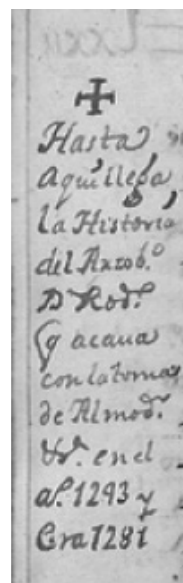 Hasta
aqui llega
la Historia
del Arzob.º
D Rod.º
q acaua
con la toma
de Almod.r
&r.ª en el
aº. 1243 y
Era 1281